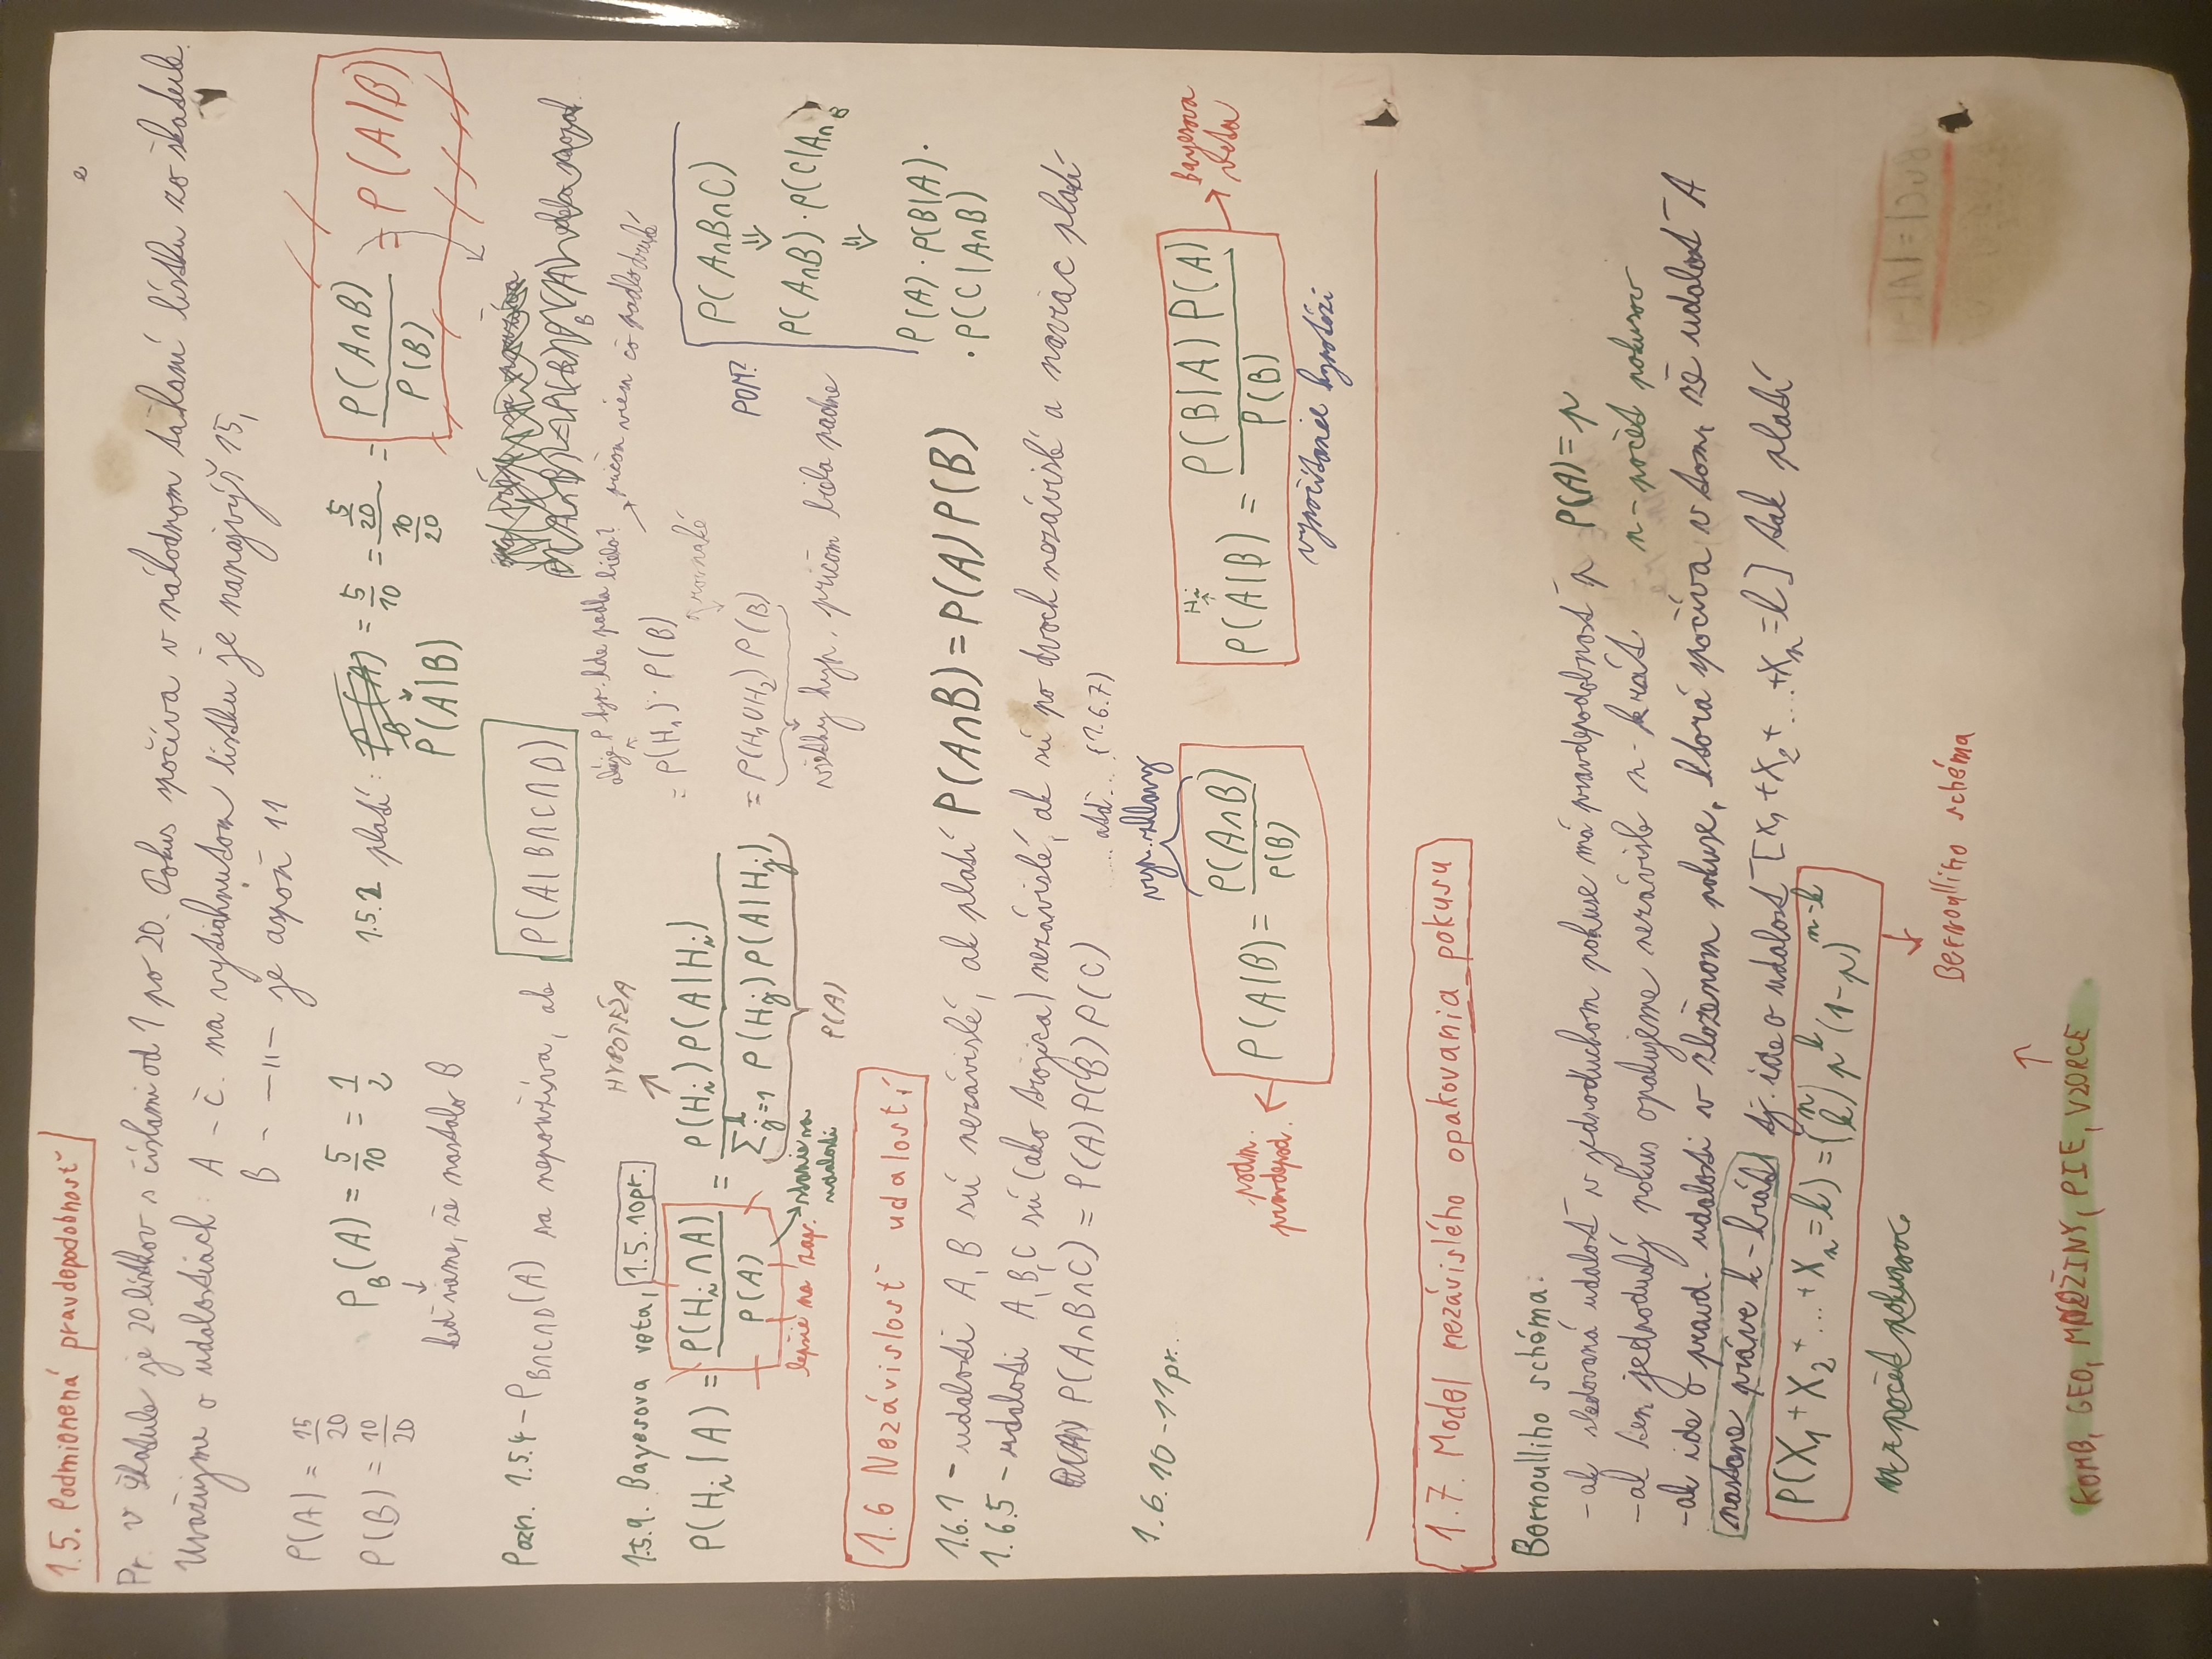 1.5. Podmienená pravdepodobnosť
Pr. V škatule je 20 lístkov s číslami od 1 po 20. Pokus spočíva v náhodnom ťahaní lístku zo škatule.
Uvažujme o udalostiach: A - č. na vytiahnutom lístku je nanajvýš 15,
B - -"- je aspoň 11
P(A) = 15/20
P(B) = 10/20
P_B(A) = 5/10 = 1/2
keď vieme, že nastalo B
1.5.2 platí: P_B(A) = 5/10 = (5/20)/(10/20) = P(A∩B)/P(B) = P(A|B)
P(A|B)
Pozn. 1.5.4 - P_{B∩C∩D}(A) sa nepoužíva, ale P(A|B∩C∩D)
1.5.9. Bayesova veta, 1.5.10pr.
HYPOTÉZA
P(H_i|A) = P(H_i∩A)/P(A) = P(H_i)P(A|H_i) / Σ_{j=1} P(H_j)P(A|H_j)
lepšie na zap.
stanie sa udalosti
P(A)
aká je P hyp. kde padla biela? pričom viem čo padlo druhé
= P(H_1)·P(B)
rovnaké
= P(H_1∪H_2) P(B)
všetky hyp. pričom biela padne
POM?
P(A∩B∩C)
⇓
P(A∩B)·P(C|A∩B
⇓
P(A)·P(B|A)·
·P(C|A∩B)
1.6 Nezávislosť udalostí
1.6.1 - udalosti A, B sú nezávislé, ak platí P(A∩B) = P(A)P(B)
1.6.5 - udalosti A, B, C sú (ako trojica) nezávislé, ak sú po dvoch nezávislé a naviac platí
P(A∩B∩C) = P(A)P(B)P(C)
.... atď... (1.6.7)
1.6.10-11pr.
vyp. z hlavy
podm. pravdepod. ← P(A|B) = P(A∩B)/P(B)
H_i
P(A|B) = P(B|A)P(A)/P(B) → Bayesova veta
vypočítanie hypotézi
1.7. Model nezávislého opakovania pokusu
Bernoulliho schéma:
-ak sledovaná udalosť v jednoduchom pokuse má pravdepodobnosť p P(A)=p
-ak ten jednoduchý pokus opakujeme nezávisle n-krát n-počet pokusov
-ak ide o pravd. udalosti v zloženom pokuse, ktorá spočíva v tom, že udalosť A
nastane práve k-krát tj. ide o udalosť [X_1+X_2+...+X_n=k] tak platí
P(X_1+X_2+...+X_n=k) = (n k) p^k (1-p)^{n-k}
n-počet pokusov
Bernoulliho schéma
KOMB, GEO, MNOŽINY, PIE, VZORCE